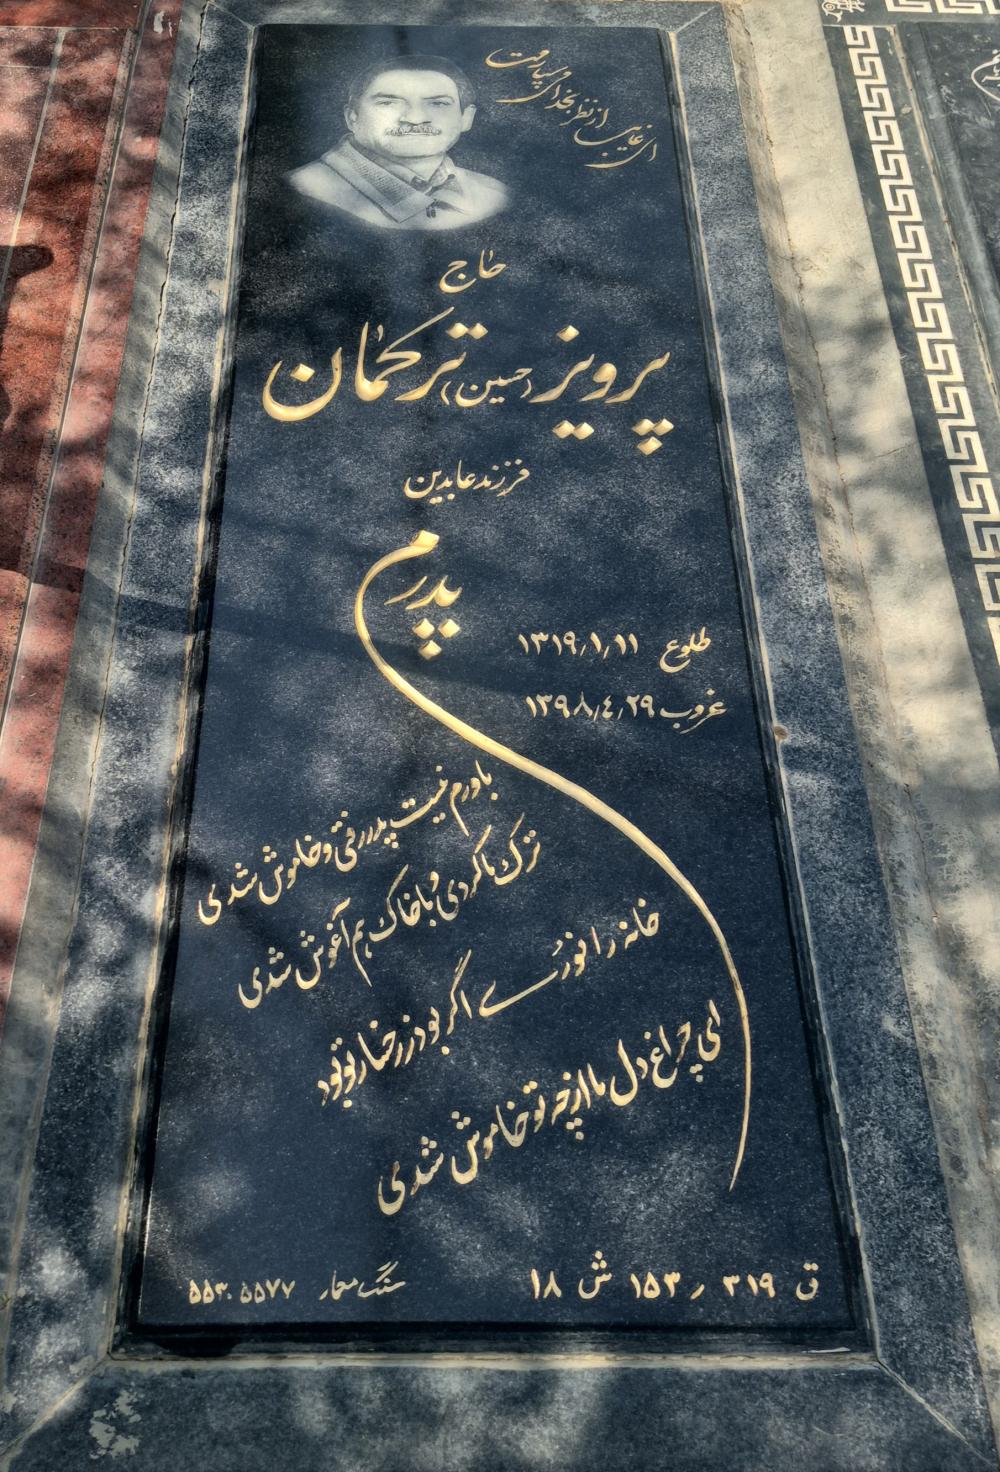 ای غایب از نظر بخدا می سپارمت
حاج
پرویز (حسین) ترکمان
فرزند عابدین
پدرم
طلوع ۱۳۱۹٫۱٫۱۱
غروب ۱۳۹۸٫٤٫۲۹
باورم نیست پدر رفتی و خاموش شدی
ترک ما کردی و با خاک هم آغوش شدی
خانه را نوری اگر بود ز رخسار تو بود
ای چراغ دل ما از چه تو خاموش شدی
ق ۳۱۹ ر ۱۵۳ ش ۱۸
سنگ معمار ۵۵۳۰۵۵۷۷